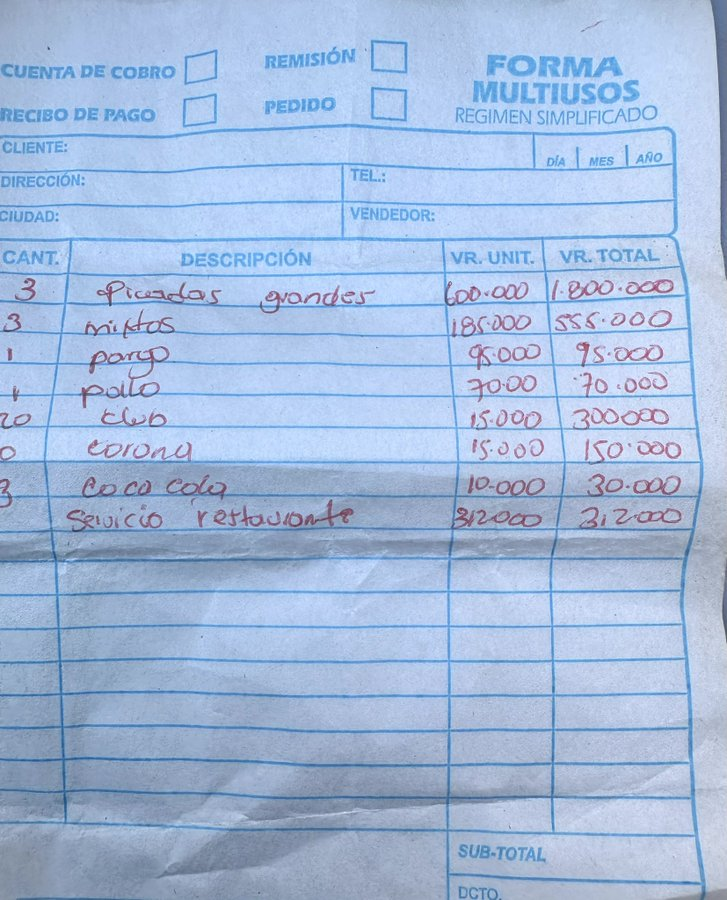 CUENTA DE COBRO REMISIÓN FORMA
MULTIUSOS
RECIBO DE PAGO PEDIDO REGIMEN SIMPLIFICADO
CLIENTE: DÍA MES AÑO
DIRECCIÓN: TEL.:
CIUDAD: VENDEDOR:
CANT. DESCRIPCIÓN VR. UNIT. VR. TOTAL
3 Picadas grandes 600.000 1.800.000
3 mixtos 185.000 555.000
1 pargo 95.000 95.000
1 pollo 70.00 70.000
20 club 15.000 300000
0 corona 15.000 150.000
3 coca cola 10.000 30.000
Servicio restaurante 312.000 312.000
SUB-TOTAL
DCTO.